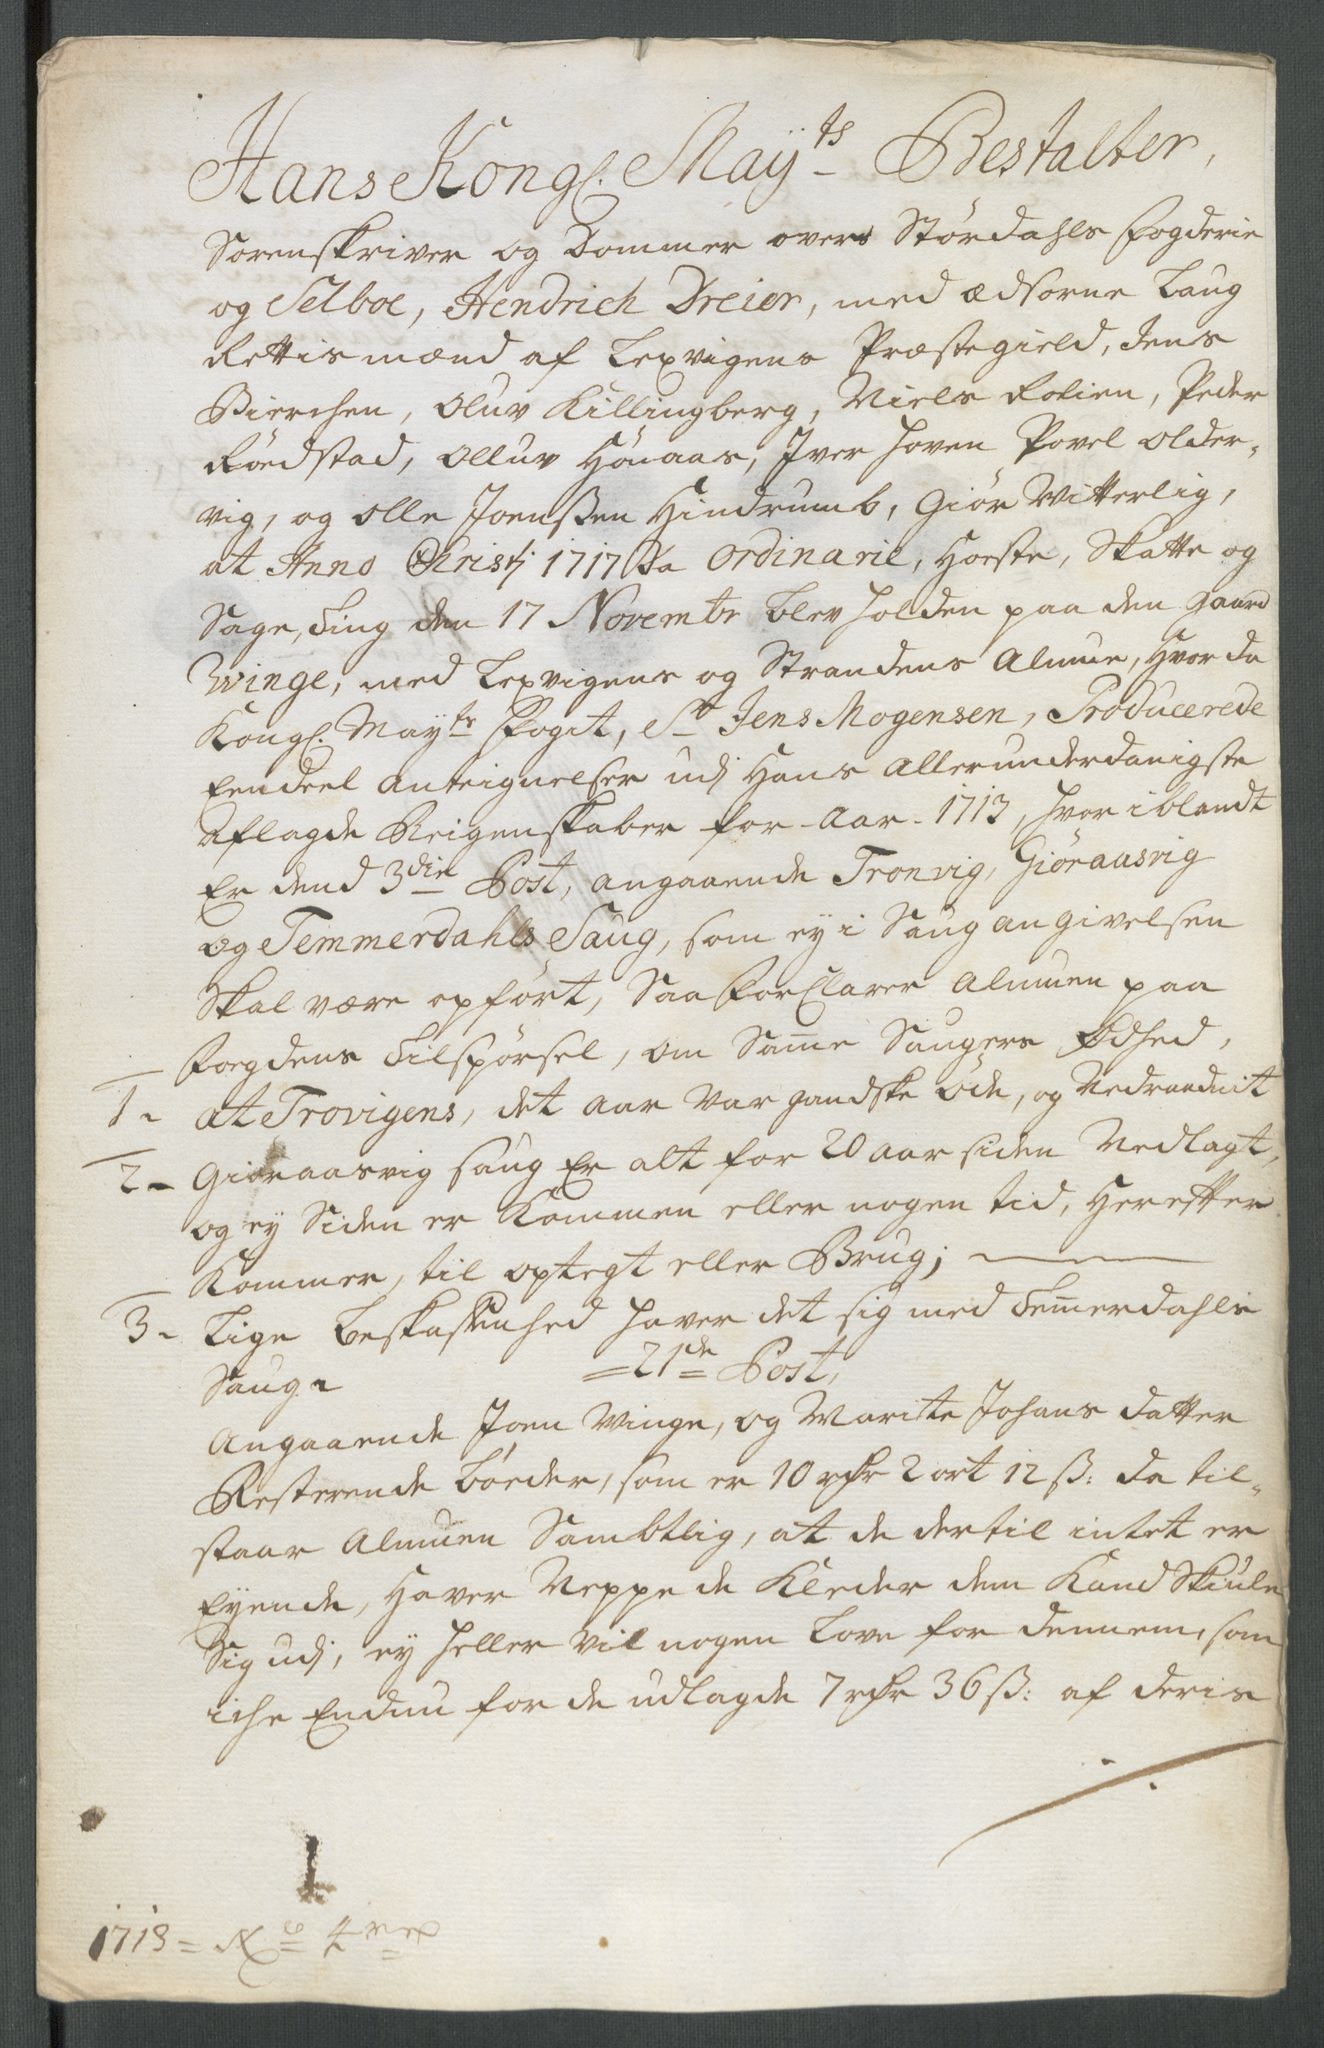 Hans Kongl. Mayts Bestalter,
Sorenskriver og Dommer over Stördahls fogderie
og Selboe, Hendrich Dreier, med ædsorne Laug
Rettismænd af Lexvigens Præstegield, Jens
Bierchen, Oluv Killingberg, Niels Rotien, Peder
Röedstad, Olluv Hönaas, Iver Hoven Povel Older,,
vig, og Olle Joenßen Hindrumb, Giör Witterlig,
at Anno Christj 1717 Da Ordinarie, Hørste, Skatte og
Sage, Ting den 17 Novembr blev holden paa den gaard
Winge, med Lexvigens og Strandens Almue, Hvor da
Kongl. Mayts Fogit, Sr Jens Mogensen, Producerede
Eendeel Anteignelser udj Hans Allerunderdanigste
Aflagde Reigenskaber for Aar 1713, hvor iblandt
Er dend 3die Post, angaaende Tronvig, Giöraasvig
og Temmerdahls Saug, som ey i Saug angivelsen
Skal være opfört, Saa forClarer Almuen paa
fogdens Tilspörsel, om Same Saugers Ødhed,
1- at Trovigens, det Aar var gandske öde, og Nedraadnit
2- Giöraasvig saug Er alt for 20 aar siden Nedlagt,
og ey Siden er Kommen eller nogen tid, Herefter
Kommer, til optegt eller Brug;
3- Lige beskaffenhed haver det sig med Temerdahls
Saug
=21de Post,
Angaaende Joen Winge, og Marite Johans datter
Resterende böeder, som er 10 rdr 2 ort 12 ß: da til,,
staar Almuen Sambtlig, at de dertil intet er
Eyende, Haver Neppe de Kleder dem Kand Skiule
Sig udj, ey heller vil nogen Love for dennem, som
iche Endnu for de udlagde 7 rdr 36 ß: af deris
1713 = No 4